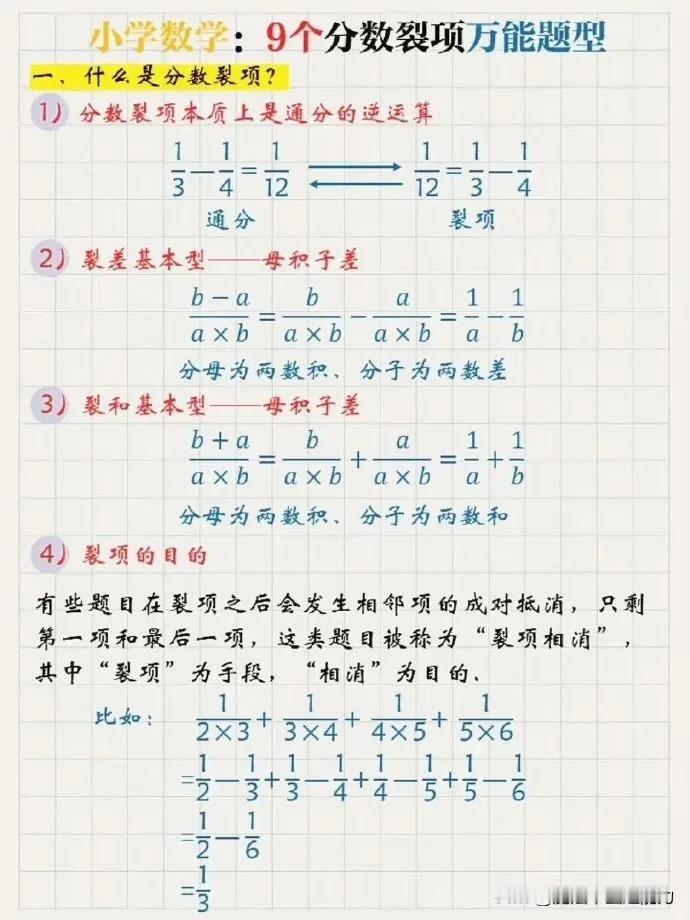 小学数学：9个分数裂项万能题型
一、什么是分数裂项？
1）分数裂项本质上是通分的逆运算
1/3 − 1/4 = 1/12 1/12 = 1/3 − 1/4
通分 裂项
2）裂差基本型——母积子差
(b − a)/(a × b) = b/(a × b) − a/(a × b) = 1/a − 1/b
分母为两数积、分子为两数差
3）裂和基本型——母积子差
(b + a)/(a × b) = b/(a × b) + a/(a × b) = 1/a + 1/b
分母为两数积、分子为两数和
4）裂项的目的
有些题目在裂项之后会发生相邻项的成对抵消，只剩
第一项和最后一项，这类题目被称为“裂项相消”，
其中“裂项”为手段，“相消”为目的.
比如： 1/(2×3) + 1/(3×4) + 1/(4×5) + 1/(5×6)
= 1/2 − 1/3 + 1/3 − 1/4 + 1/4 − 1/5 + 1/5 − 1/6
= 1/2 − 1/6
= 1/3